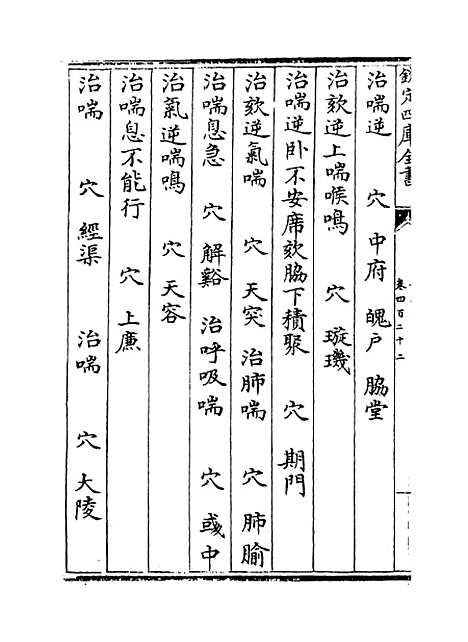 欽定四庫全書
卷四百二十二
治喘逆 穴 中府 魄户 脇堂
治欬逆上喘喉鳴 穴 璇璣
治喘逆卧不安席欬脇下積聚 穴 期門
治欬逆氣喘 穴 天突 治肺喘 穴 肺腧
治喘息急 穴 解谿 治呼吸喘 穴 彧中
治氣逆喘鳴 穴 天容
治喘息不能行 穴 上廉
治喘 穴 經渠 治喘 穴 大陵